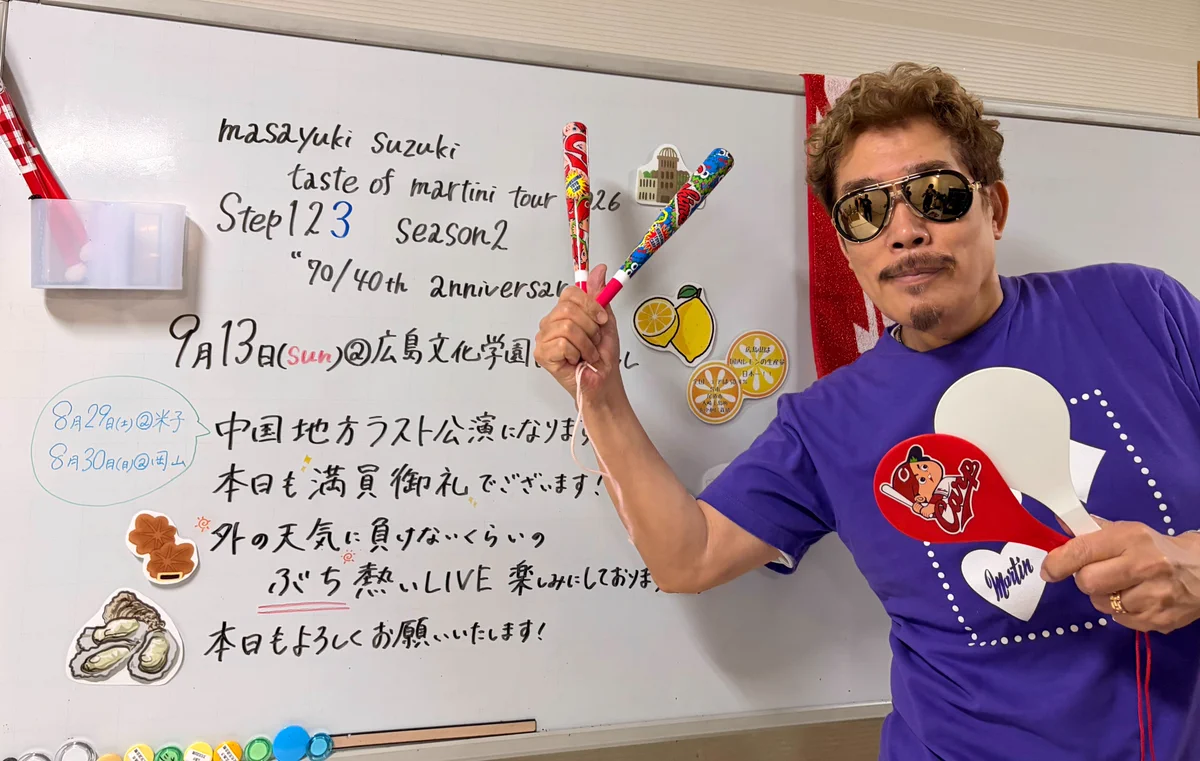 masayuki suzuki
taste of martini tour 26
Step123 season2
"70/40th anniversar
9月13日(sun)@広島文化学園
8月29日(土)@米子
8月30日(日)@岡山
中国地方ラスト公演になります
本日も満員御礼でございます!
外の天気に負けないくらいの
ぶち熱いLIVE 楽しみにしております
本日もよろしくお願いいたします!
広島県は
国内レモンの生産量
日本一!
Carp
Martin